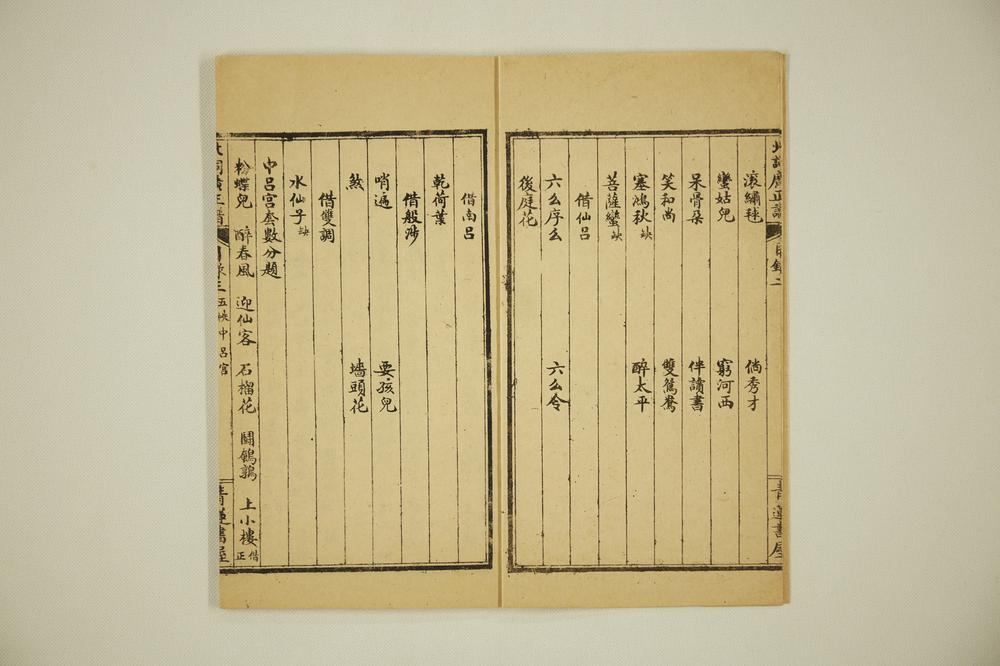 北詞廣正譜 目錄二 青蓮書屋
滾繡毬 倘秀才
蠻姑兒 窮河西
呆骨朵 伴讀書
笑和尚 雙鴛鴦
塞鴻秋缺 醉太平
菩薩蠻缺
借仙呂
六么序么 六么令
後庭花
借南呂
乾荷葉
借般涉
哨遍 耍孩兒
煞 墻頭花
借雙調
水仙子缺
中呂宮套數分題
粉蝶兒 醉春風 迎仙客 石榴花 鬪鵪鶉 上小樓 借正
北詞廣正譜 目錄三 五帙中呂宮 青蓮書屋